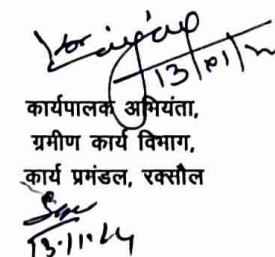 13/01/
कार्यपालक अभियंता,
ग्रमीण कार्य विभाग,
कार्य प्रमंडल, रक्सौल
13.11.24